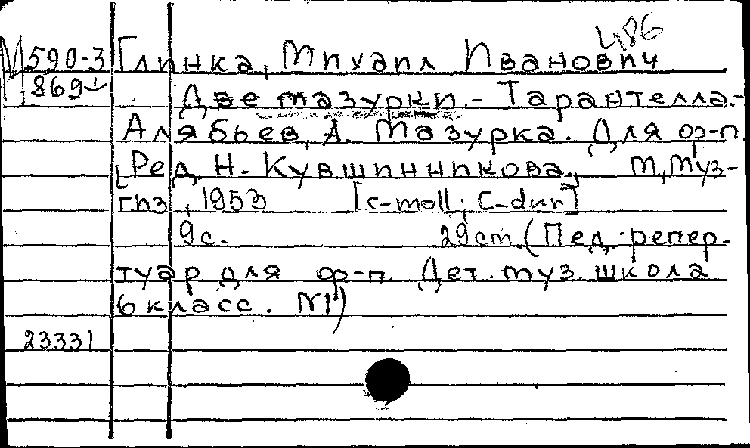 486
М 590-3 Глинка, Михаил Иванович
869 Две мазурки. - Тарантелла.-
Алябьев, А. Мазурка. Для ф-п.
[Ред. Н. Кувшинникова., М., Муз-
гиз, 1953 [c-moll; C-dur]
9с. 29cm. (Пед. репер-
туар для ф-п. Дет. муз. школа
6 класс. №1)
23331